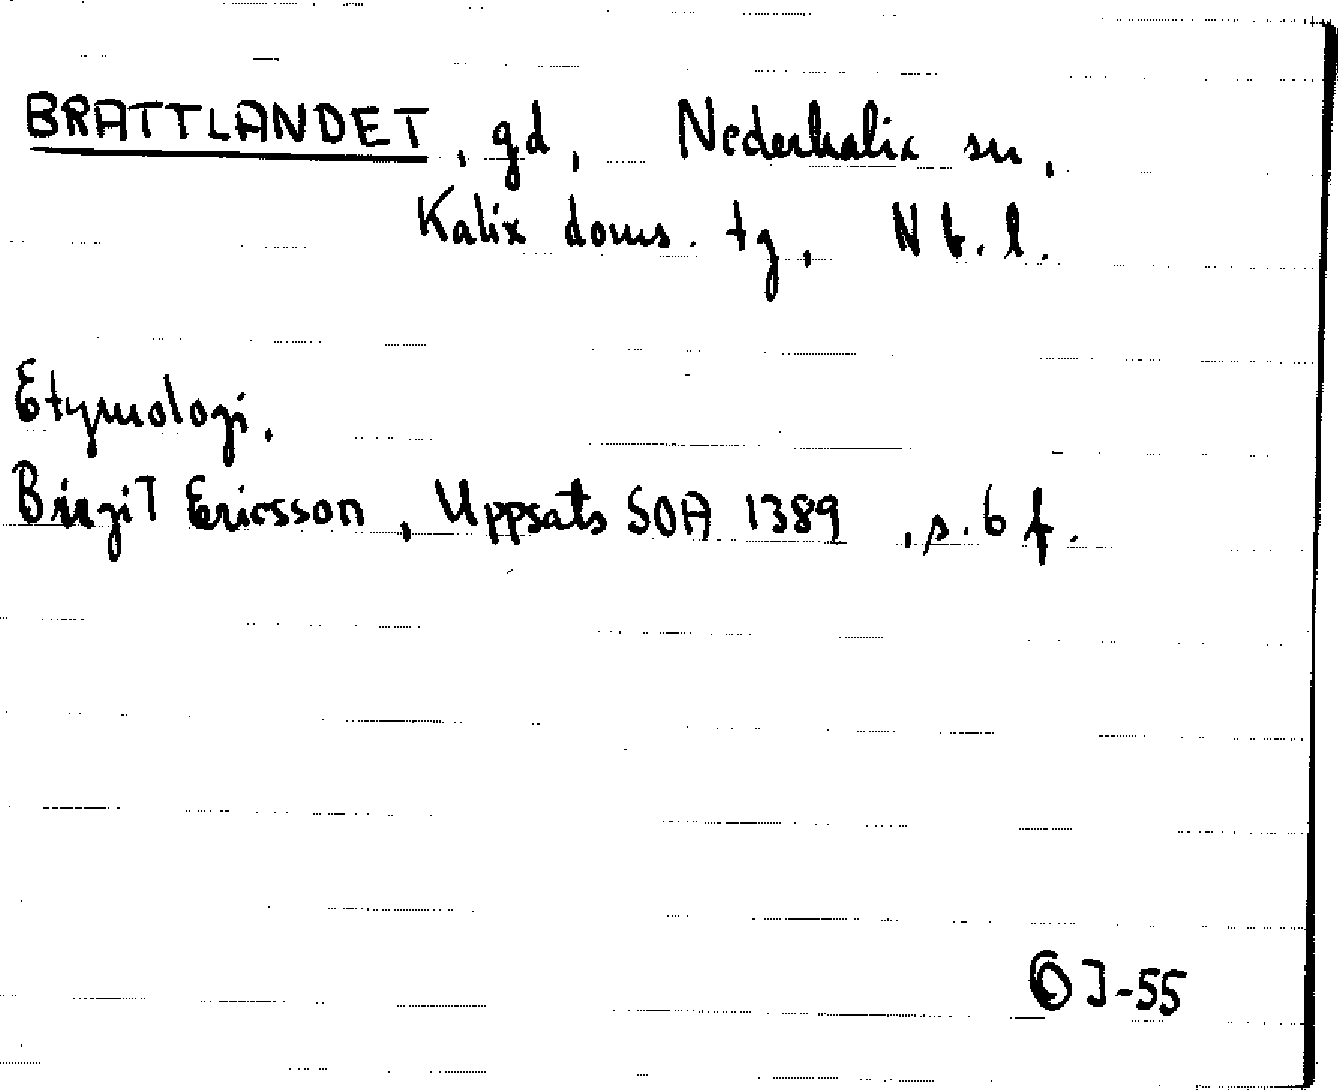 BRATTLANDET, gd, Nederkalix sn,
Kalix doms. tg, Nb. l.
Etymologi.
Birgit Ericsson, Uppsats SOA 1389, s. 6 f.
OJ-55